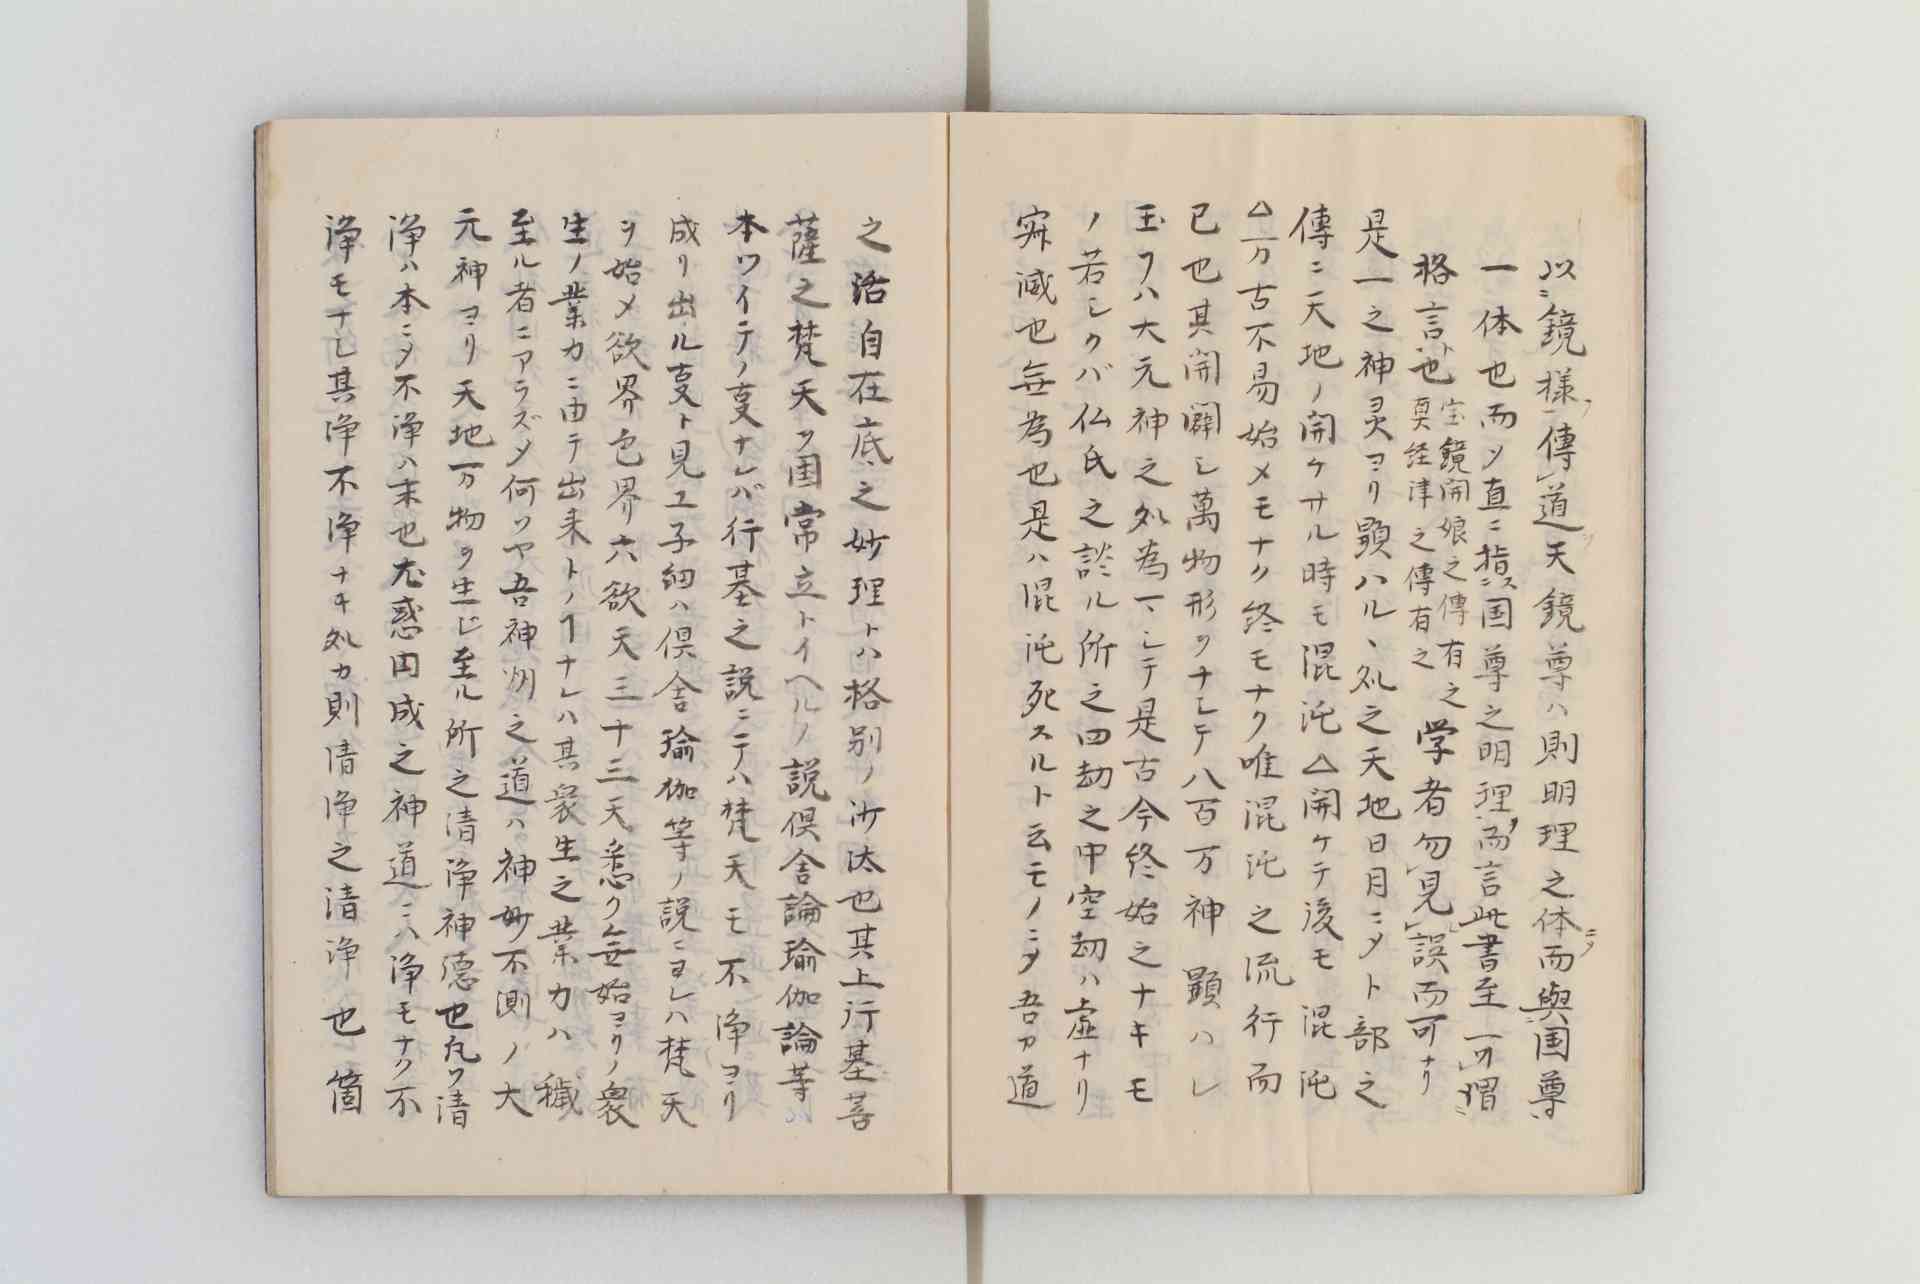 以ニ鏡様ヲ傳道ツ天鏡尊ハ則明理之体ニメ而與国尊
一体也而メ直ニ指ス国尊之明理ヲ而言此書至一可謂
格言ト也 宝鏡開娘之傳有之 奠経津之傳有之 学者勿見誤而可ナリ
是一之神灵ヨリ顕ハルヽ処之天地日月ニメト部之
傳ニ天地ノ開ケサル時モ混沌△開ケテ後モ混沌
△万古不易始メモナク終モナク唯混沌之流行而
已也其開闢シ萬物形ヲナシテ八百万神顕ハレ
玉フハ大元神之処為一ヽシテ是古今終始之ナキモ
ノ若シクバ仏氏之談ル所之四劫之中空劫ハ虚ナリ
寂滅也無為也是ハ混沌死スルト云モノニメ吾カ道
之活自在底之妙理トハ格別ノ沙汰也其上行基菩
薩之梵天ヲ国常立トイヘルノ説倶舎論瑜伽論等
本ツイテノ㕝ナレバ行基之説ニテハ梵天モ不浄ヨリ
成リ出ル㕝ト見ユ子細ハ倶舎瑜伽等ノ説ニヨレハ梵天
ヲ始メ欲界色界六欲天三十三天悉ク無始ヨリノ衆
生ノ業力ニ由テ出来トノ𬼀ナレハ其衆生之業力ハ穢
至ル者ニアラズメ何ソヤ吾神州之道ハ神妙不測ノ大
元神ヨリ天地万物ヲ生じ至ル所之清浄神徳也凡ソ清
浄ハ本ニメ不浄ハ末也尤惑円成之神道ニハ浄モナク不
浄モナし其浄不浄ナキ処カ則清浄之清浄也箇